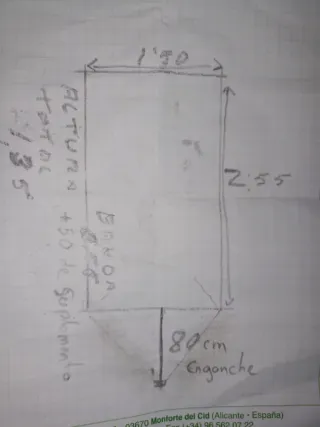 1'50
2'55
ALTURA +50 de Suplemento
TOTAL
1,35
80cm
Enganche
03670 Monforte del Cid (Alicante - España)
(+34) 96 562 07 22